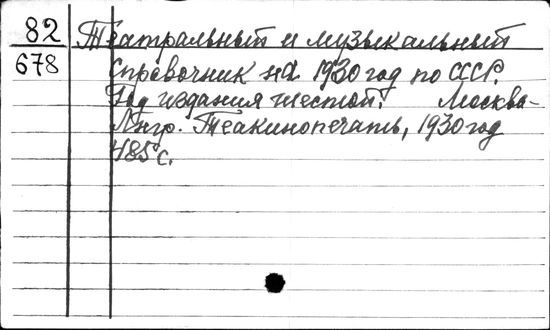 82 Театральный и музыкальный
678 справочник на 1930 год по СССР.
Год издания шестой. Москва-
Лнгр. Теакинопечать, 1930 год
485 с.